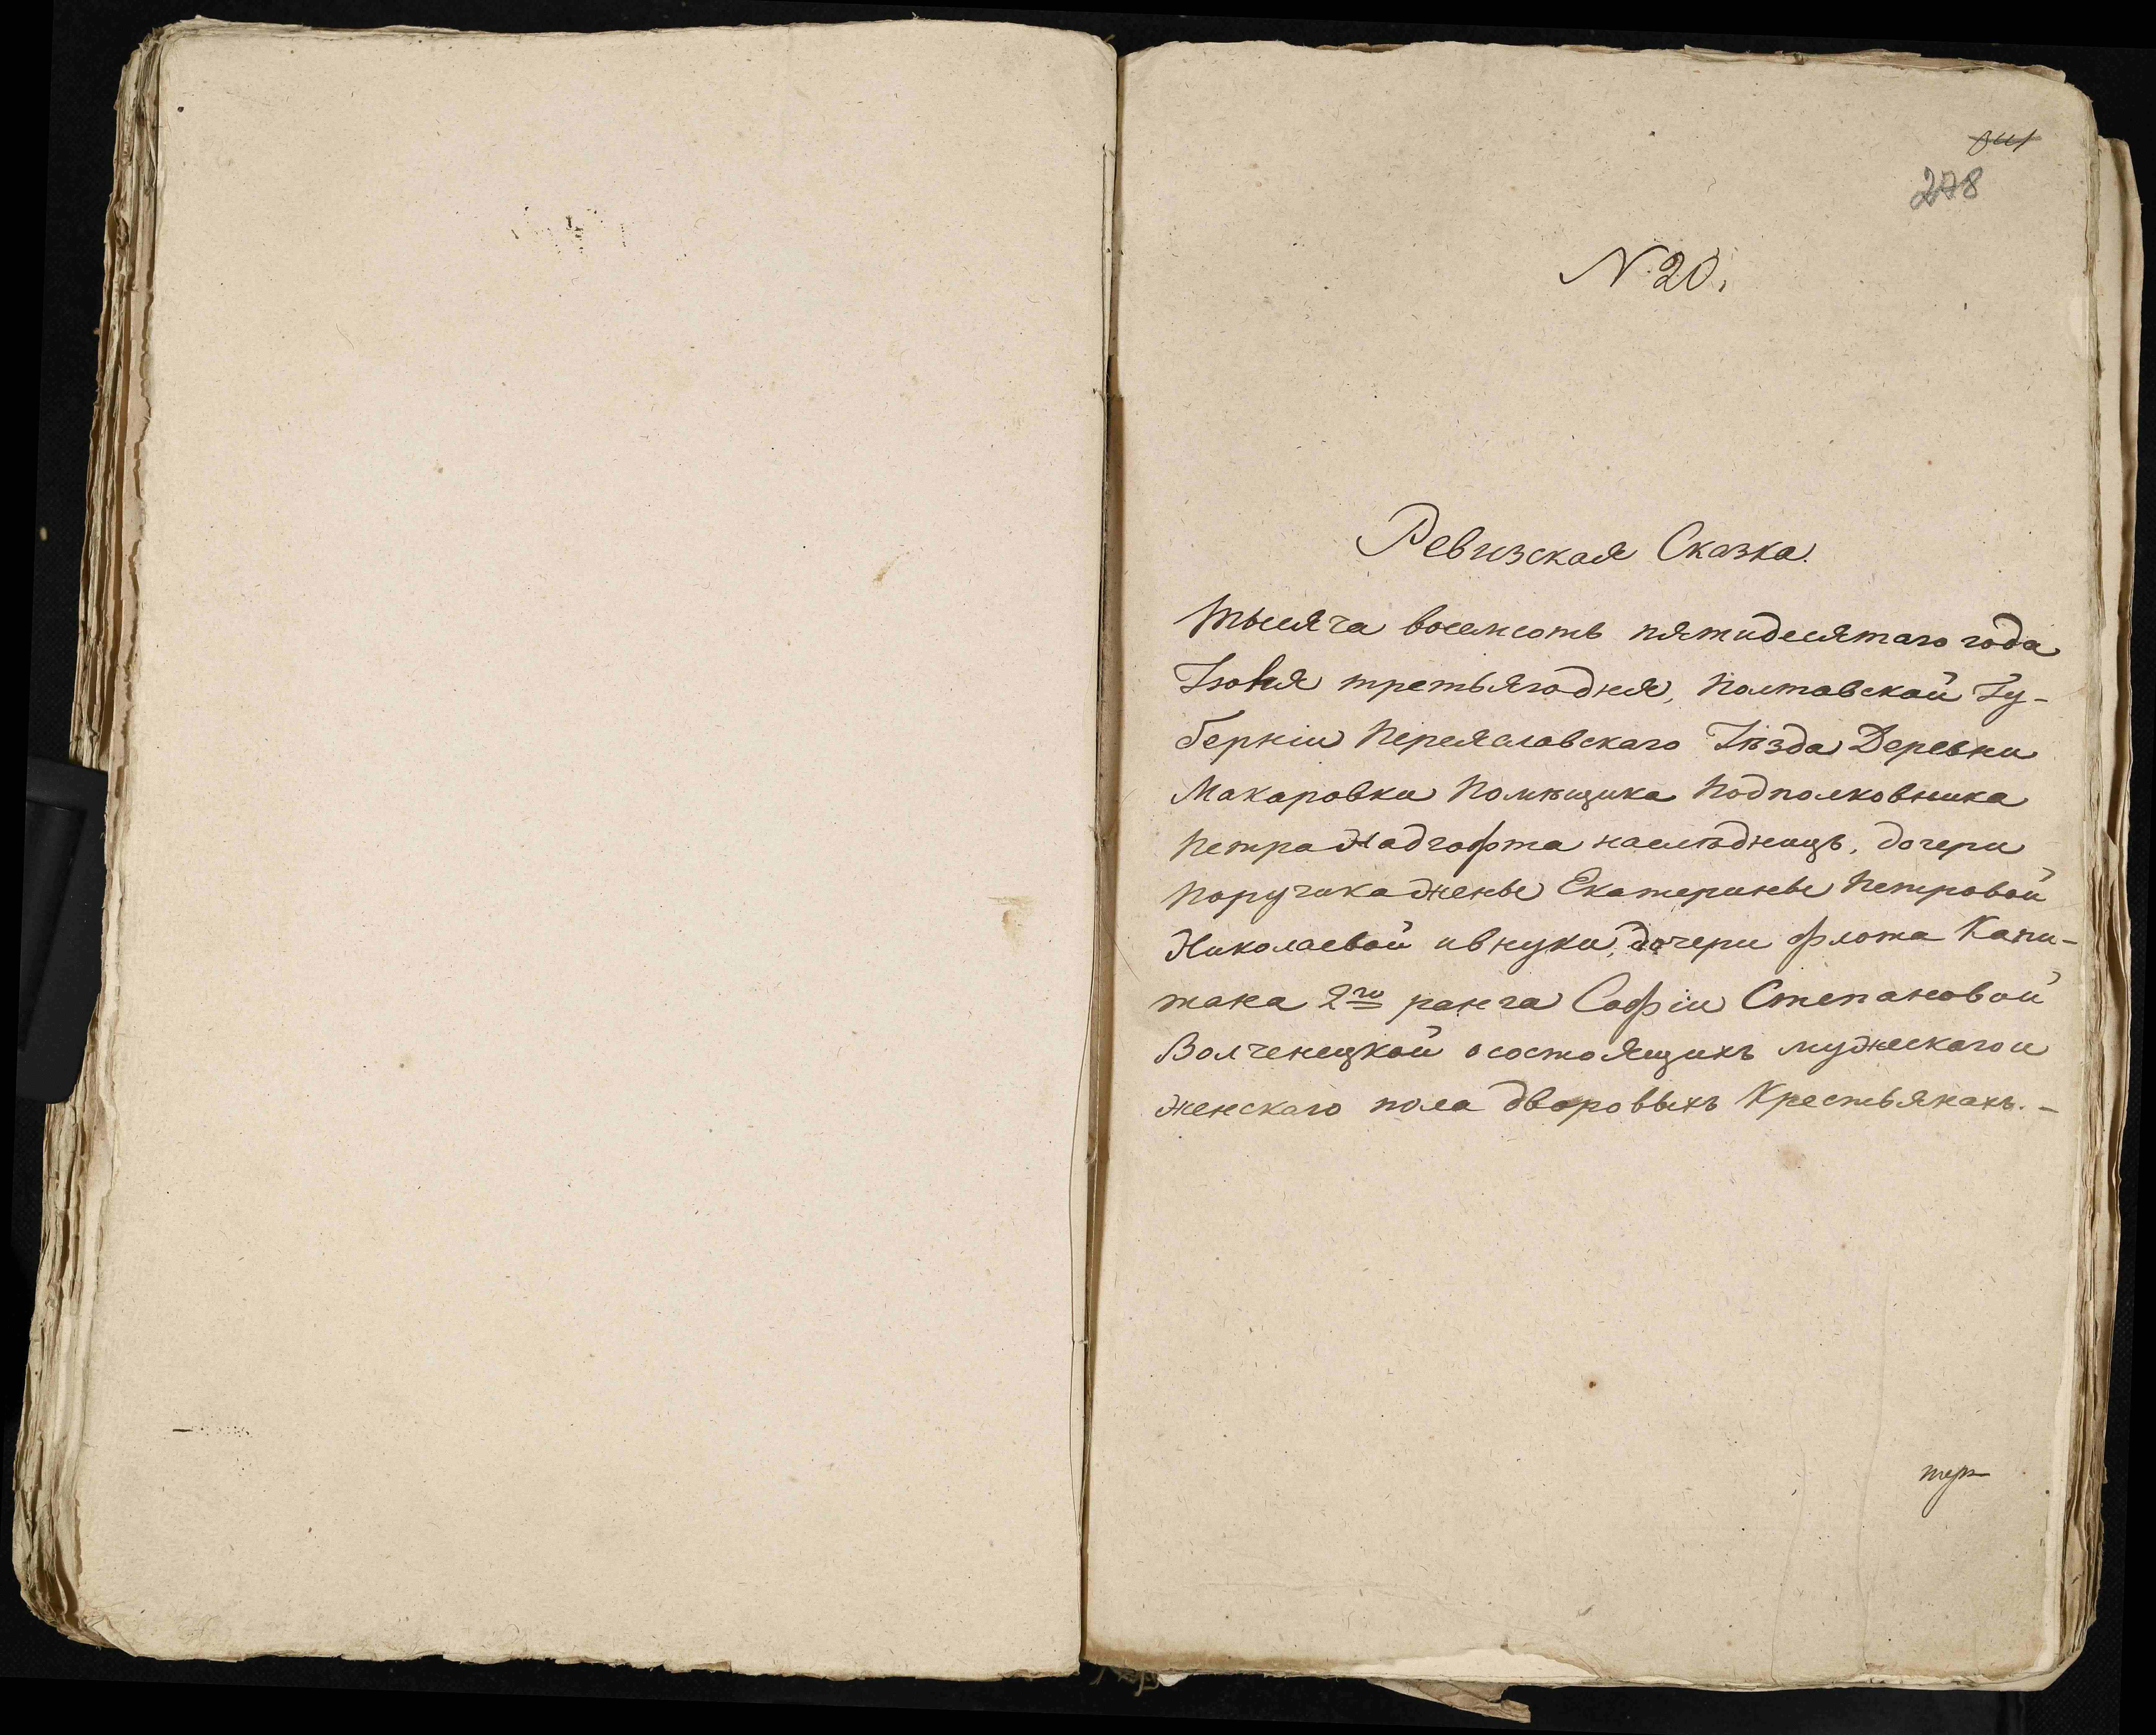 278
N 20.
Ревизская Сказка.
Тысяча восемсотъ пятидесятаго года
Іюня третьягодня, Полтавской Гу-
берніи Переяславскаго Уѣзда Деревни
Макаровки Помѣщика Подполковника
Петра Надгофта наслѣдницъ, дочери
Поручика жены Екатерины Петровой
Николаевой ивнуки, дочери флота Капи-
тана 2го ранга Софіи Степановой
Волченецкой осостоящихъ мужескаго и
женскаго пола дворовыхъ Крестьянахъ. -